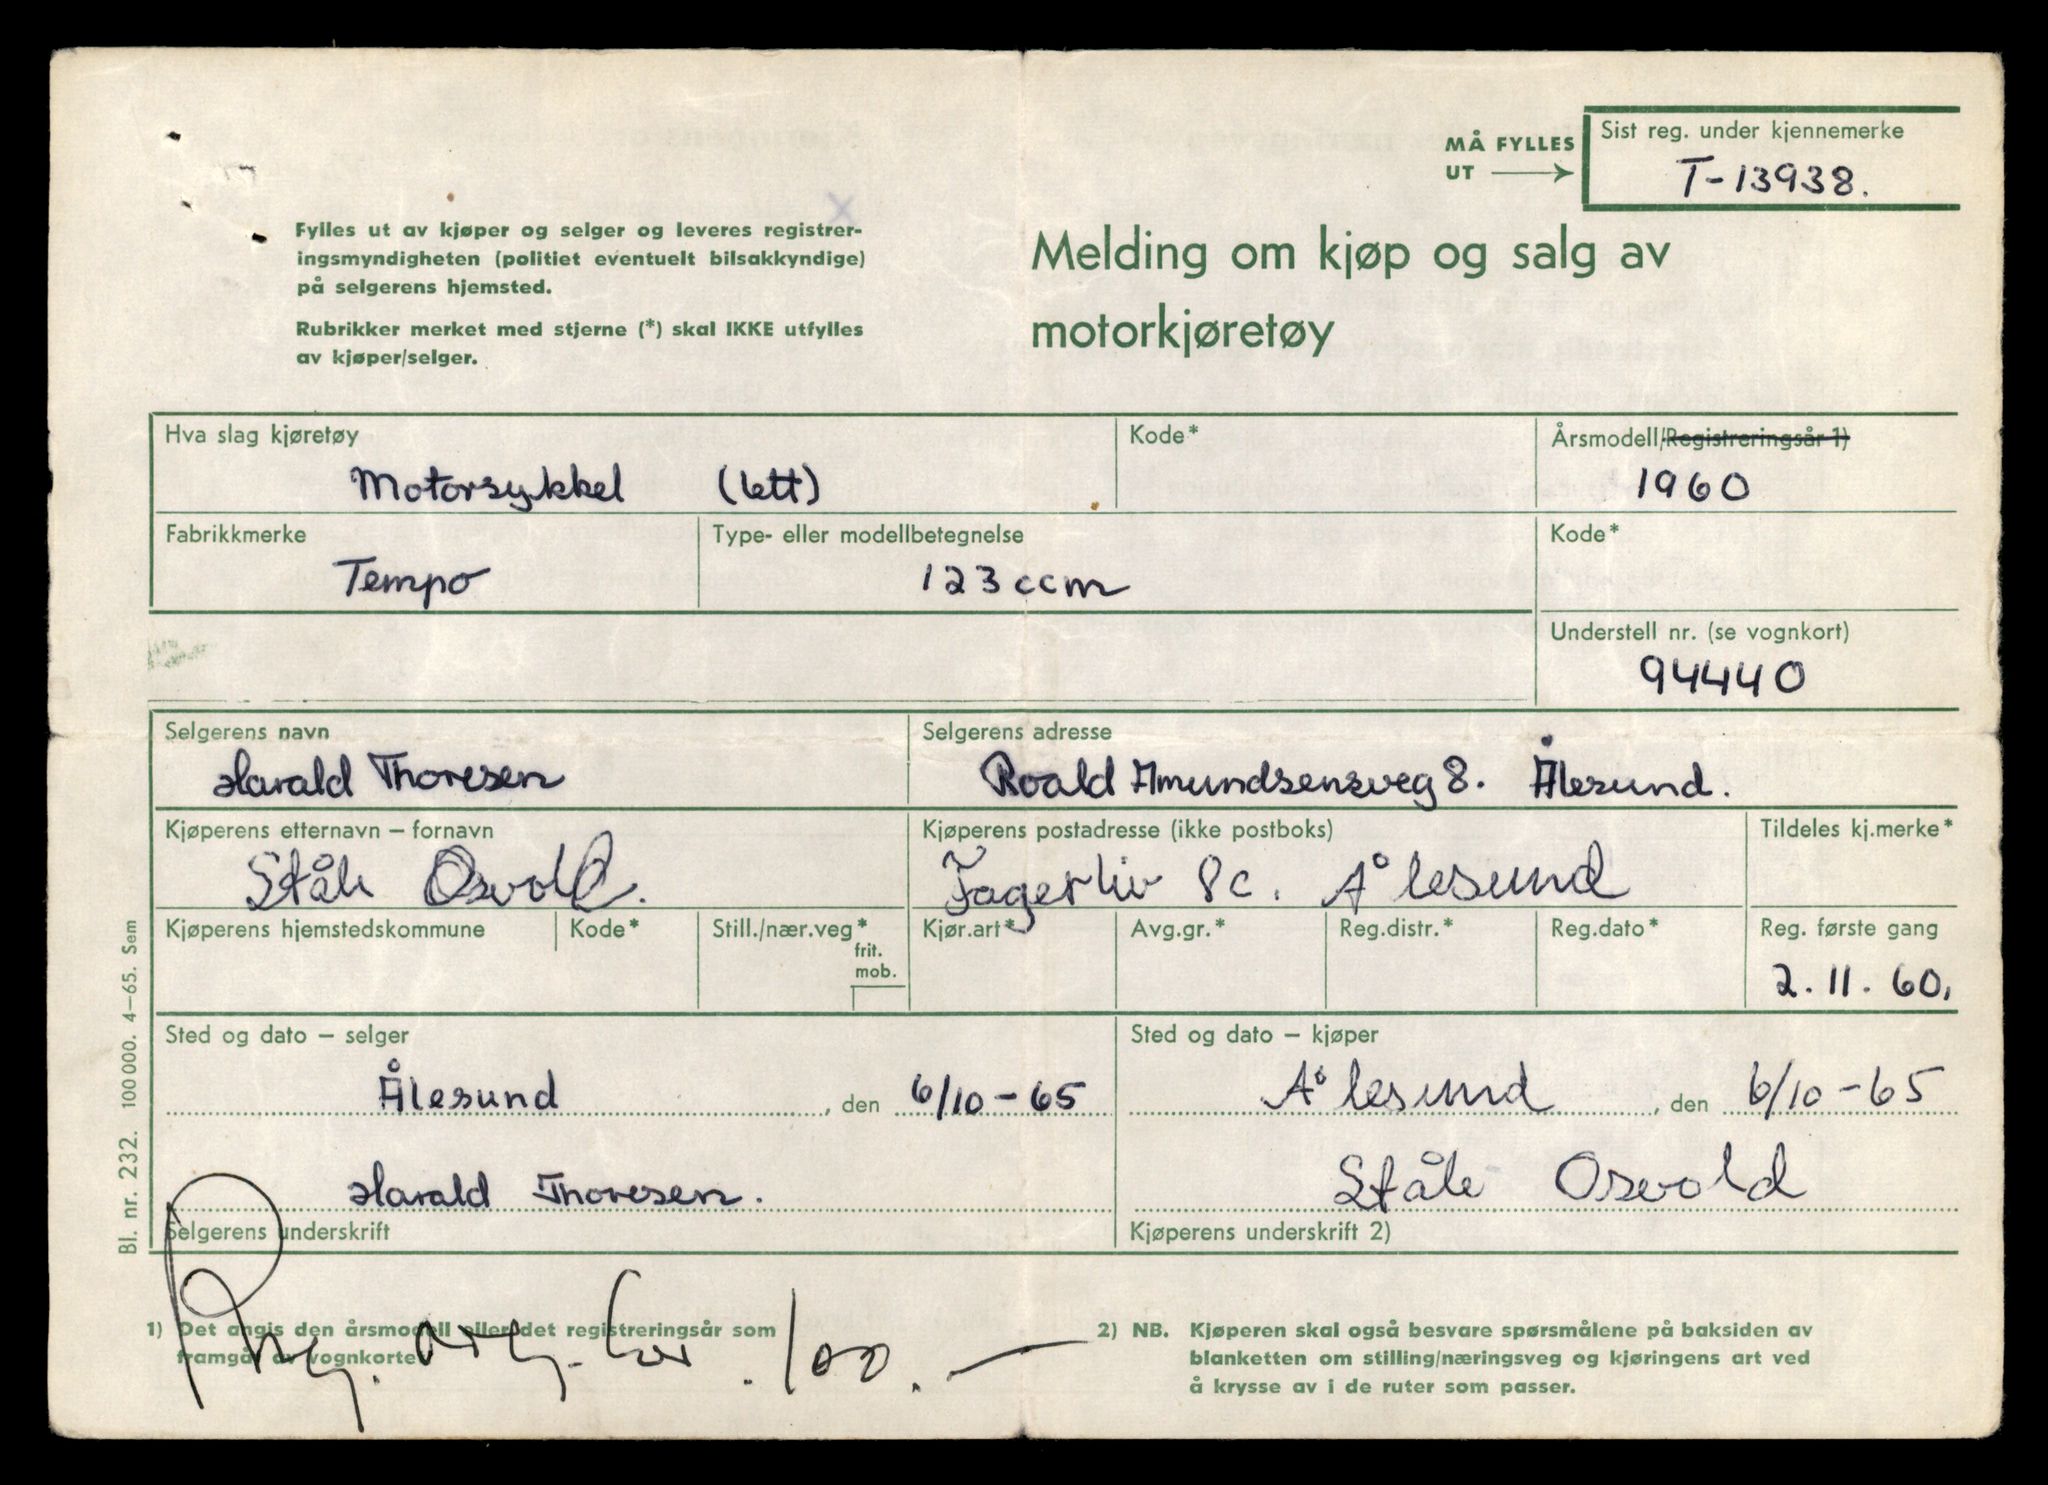 MÅ FYLLES
UT
Sist reg. under kjennemerke
T-13938.
Fylles ut av kjøper og selger og leveres registrer-
ingsmyndigheten (politiet eventuelt bilsakkyndige)
på selgerens hjemsted.
Rubrikker merket med stjerne (*) skal IKKE utfylles
av kjøper/selger.
Melding om kjøp og salg av
motorkjøretøy
Hva slag kjøretøy
Motorsykkel (lett)
Kode*
Årsmodell/Registreringsår 1)
1960
Fabrikkmerke
Tempo
Type- eller modellbetegnelse
123 ccm
Kode*
Understell nr. (se vognkort)
94440
Selgerens navn
Harald Thoresen
Selgerens adresse
Roald Amundsensveg 8. Ålesund.
Kjøperens etternavn – fornavn
Ståle Osvold.
Kjøperens postadresse (ikke postboks)
Fagerliv 8c. Ålesund
Tildeles kj.merke*
Kjøperens hjemstedskommune
Kode*
Still./nær.veg*
frit.
mob.
Kjør.art*
Avg.gr.*
Reg.distr.*
Reg.dato*
Reg. første gang
2.11.60.
Sted og dato – selger
Ålesund, den 6/10-65
Sted og dato – kjøper
Ålesund, den 6/10-65
Harald Thoresen.
Selgerens underskrift
Ståle Osvold
Kjøperens underskrift 2)
1) Det angis den årsmodell eller det registreringsår som
framgår av vognkortet
100.—
2) NB. Kjøperen skal også besvare spørsmålene på baksiden av
blanketten om stilling/næringsveg og kjøringens art ved
å krysse av i de ruter som passer.
Bl. nr. 232. 100 000. 4–65. Sem